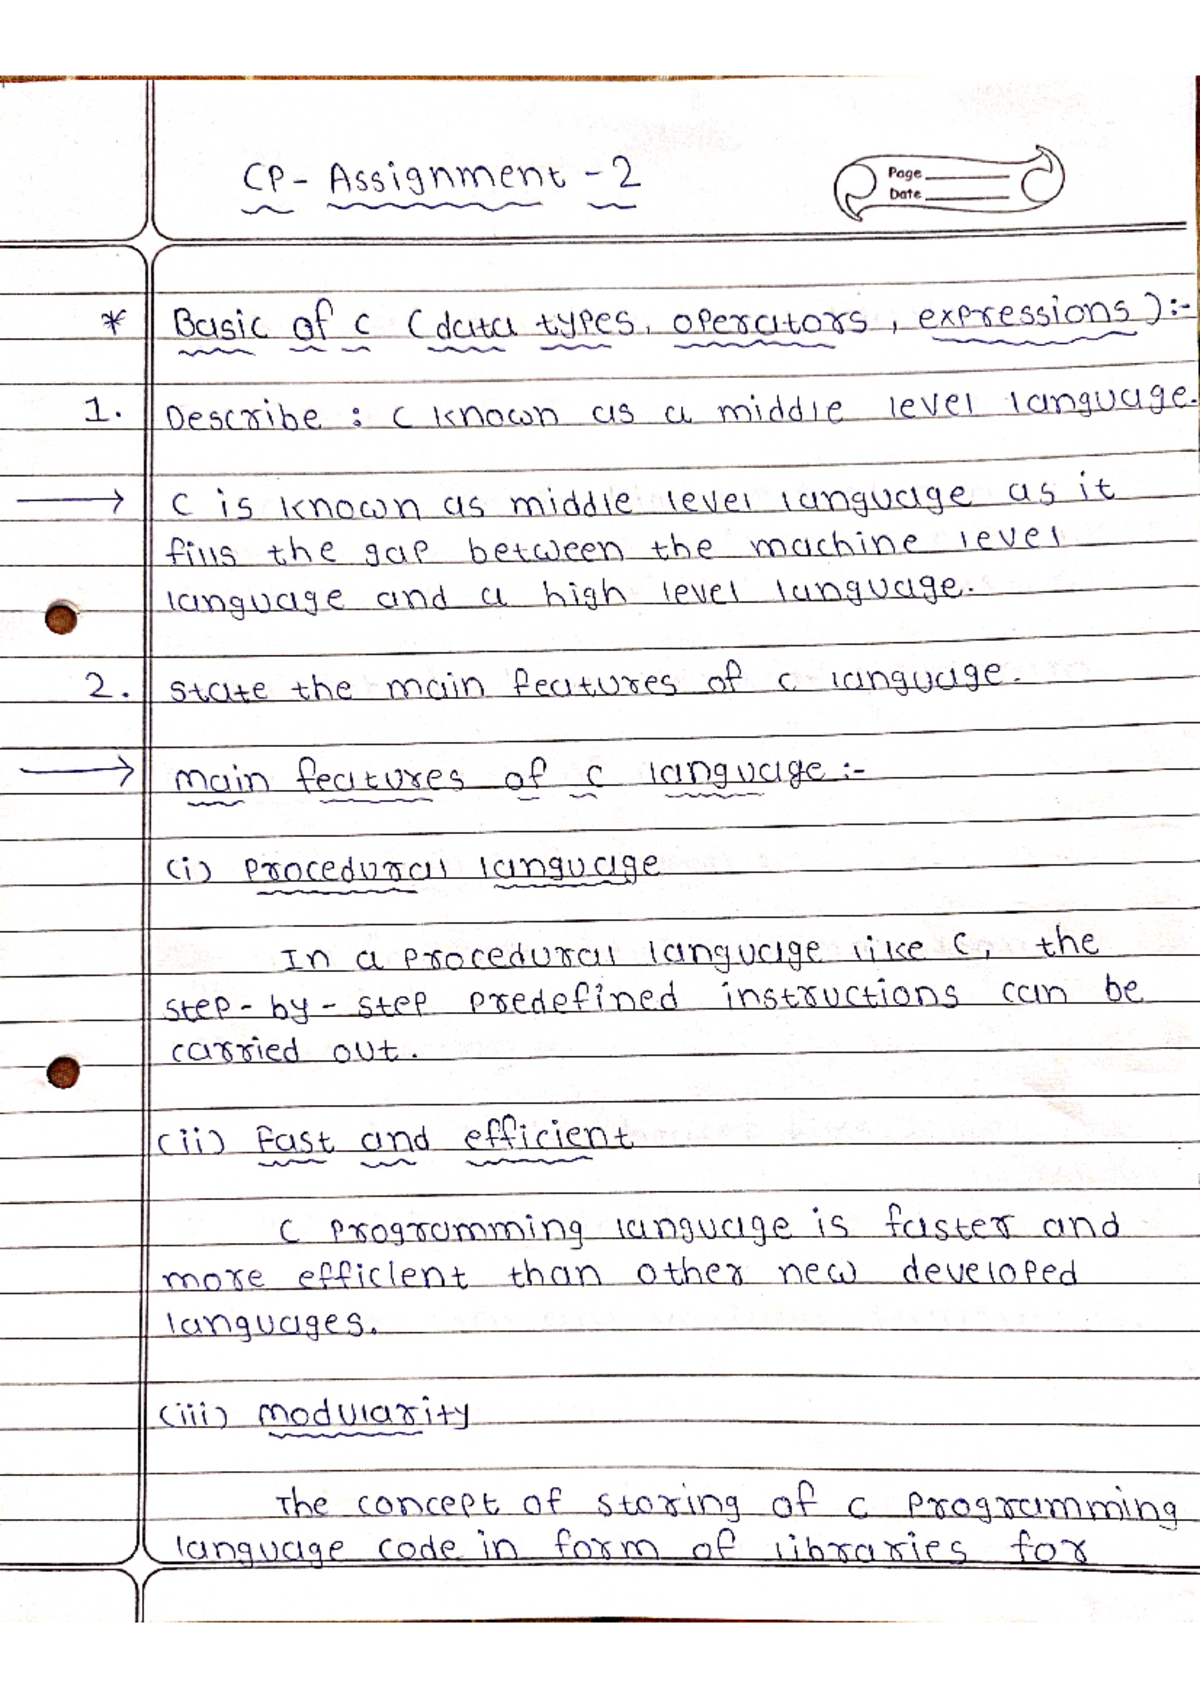 CP- Assignment -2
Page
Date
* Basic of C (data types, operators, expressions):-
1. Describe : C known as a middle level language.
→ C is known as middle level language as it
fills the gap between the machine level
language and a high level language.
2. State the main features of C language.
→ main features of C language :-
(i) Procedural language
In a procedural language like C, the
step-by-step predefined instructions can be
carried out.
(ii) Fast and efficient
C programming language is faster and
more efficient than other new developed
languages.
(iii) modularity
The concept of storing of C programming
language code in form of libraries for